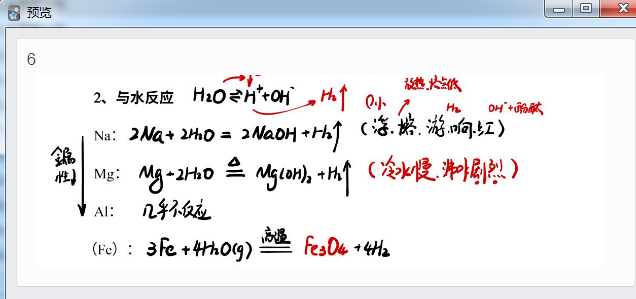 预览
6
放热.熔点低
2、与水反应 H₂O⇌H⁺+OH⁻ H₂↑ ρ小 H₂ OH⁻+酚酞
Na： 2Na+2H₂O = 2NaOH+H₂↑ (浮.熔.游.响.红)
金属性↓
Mg： Mg+2H₂O ≜ Mg(OH)₂+H₂↑ (冷水慢.沸水剧烈)
Al： 几乎不反应
(Fe)： 3Fe+4H₂O(g) =高温= Fe₃O₄+4H₂